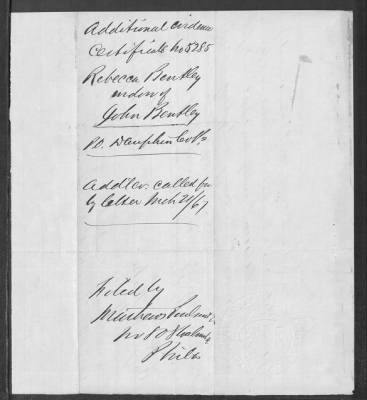 Additional evidence
Certificate No 5285
Rebecca Bentley
widow of
John Bentley
P.O. Dauphin Co Pa
Addl ev. called for
by letter Mch 21/67
Filed by
Matthews
No 80
Phila